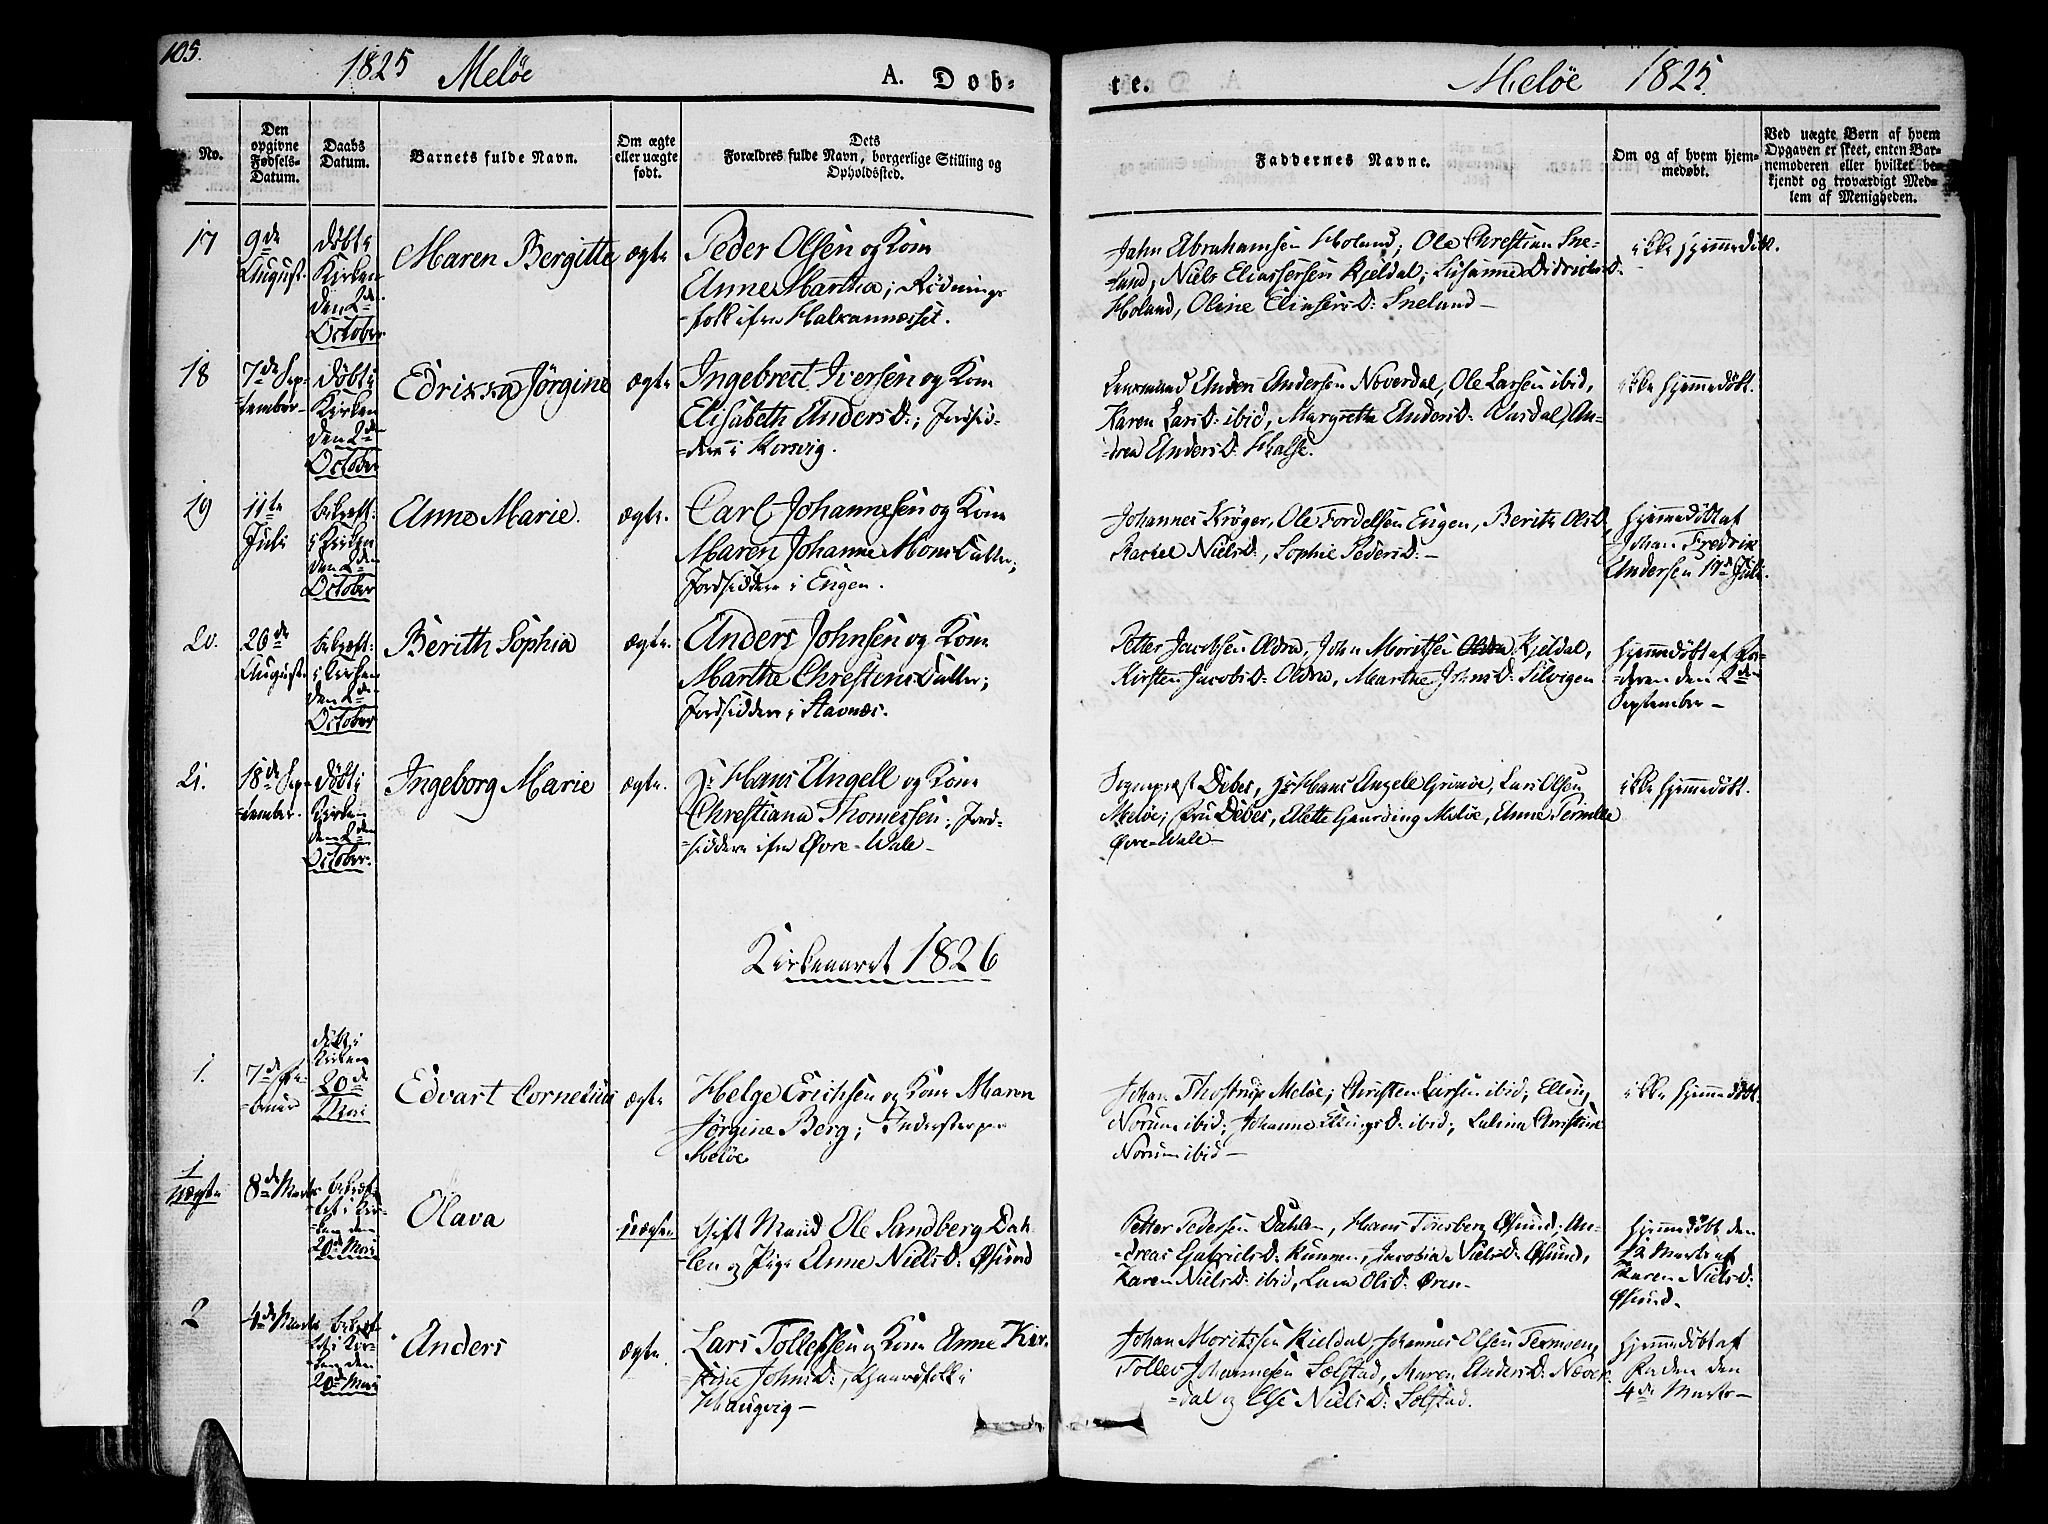 105.
1825 Meløe
A. Døb-
te.
Meløe 1825.
No.
Den
opgivne
Fødsels-
Datum.
Daabs
Datum.
Barnets fulde Navn.
Om ægte
eller uægte
født.
Dets
Forældres fulde Navn, borgerlige Stilling og
Opholdssted.
Faddernes Navne.
Om og af hvem hjem-
medøbt.
Ved uægte Børn af hvem
Opgaven er skeet, enten Bar-
nemoderen eller hvilket be-
kjendt og troværdigt Med-
lem af Menigheden.
17
9de
August
døbt i
Kirken
den 2den
October
Maren Bergitte
ægte
Peder Olsen og Kone
Anne Martha; Rødnings
=folk ifra Halsannæsset.
Jahn Abrahamsen Holand; Ole Christian Sne-
land, Niels Eliassersen Kjeldal; Susanne DidrichsD:
Holand, Oline EliasersD: Sneland-
ikke hjemmedøbt.
18
7de Sep-
tember-
døbt i
Kirken
den 2den
October
Edrissa Jørgine
ægte
Ingebrect Iversen og Kone
Elisabeth AndersD:; Jordsid-
dere i Korsvig.
Lensmand Anders Andersen Noverdal, Ole Larsen ibid,
Karen LarsD: ibid, Margrethe AndersD: Aasdal, An-
=drea AndersD: Halse.
ikke hjemmedøbt.
19
11te
Juli
bekræft:
i Kirken
den 2den
October
Anne Marie.
ægte.
Carl Johannesen og Kone
Maren Johanne MonsDatter;
Jordsiddere i Engen.
Johannes Krøger, Ole Fordelsen Engen, Berith OlsD,
Rachel NielsD:, Sophie PedersD:-
hjemmedøbt af
Johan Fredrik
Andersen 17de Juli.
20.
26de
August
bekræft:
i Kirken
den 2den
October
Berith Sophia
ægte.
Anders Johnsen og Kone
Marthe ChrestensDatter;
Jordsiddere i Stavnæs.
Petter Jacobsen Aldra, John Moritsen Kjeldal,
Kirsten JacobsD: Oldra, Marthe JohnsD: Selvigen
hjemmedøbt af Fa-
=deren den 2den
September-
21.
18de Sep-
=tember.
døbt i
Kirken
den 2den
October.
Ingeborg Marie
ægte.
Hans Angell og Kone
Chrestiana Thomessen; Jord-
=siddere ifra Øvre-Wale-
Sogneprest Debes, Hans Angele Grimøe, Lars Olsen
Meløe, Fru Debes, Elette Gaarding Meløe, Anne Pernille
Øvre-Wale-
ikke hjemmedøbt.
Kirkeaaret 1826
1.
7de Fe-
=bruar
døbt i
Kirken
20de
Mai
Edvart Cornelius
ægte
Helge Erichsen og Kone Maren
Jørgine Berg; Inderster paa
Meløe
Johan Thostrup Meløe; Christen Larsen ibid; Elling
Norum ibid; Johanne EllingsD: ibid; Lalina Christine
Norum ibid-
ikke hjemmedøbt.
1
Uægte
8de Marts
bekræf-
tet i Kir-
ken den
20de Mai
Olava
uægte
Gift Mand Ole Sandberg Dah-
len og Pige Anne NielsD: Øsund
Petter Pedersen Dahlen, Hans Tønsberg Øsund; An-
=dreas GabrielsD: Kunnen, Jacobia NielsD: Øsund,
Karen NielsD: ibid, Lava OlsD: Øren-
hjemmedøbt den
12 Marts af
Karen NielsD:
Øsund-
2
4de Marts
bekræf-
tet i Kir-
ken den
20de Mai
Anders
ægte.
Lars Tollefsen og Kone Anne Kir-
stine JohnsD:, Gaardfolk i
Haugvig-
Johan Moritssen Kieldal, Johannes Olsen
Tollev Johannesen Solstad, Maren AndersD: Nover-
=dal og Else NielsD: Solstad.
hjemmedøbt af
Faderen den
4de Marts-